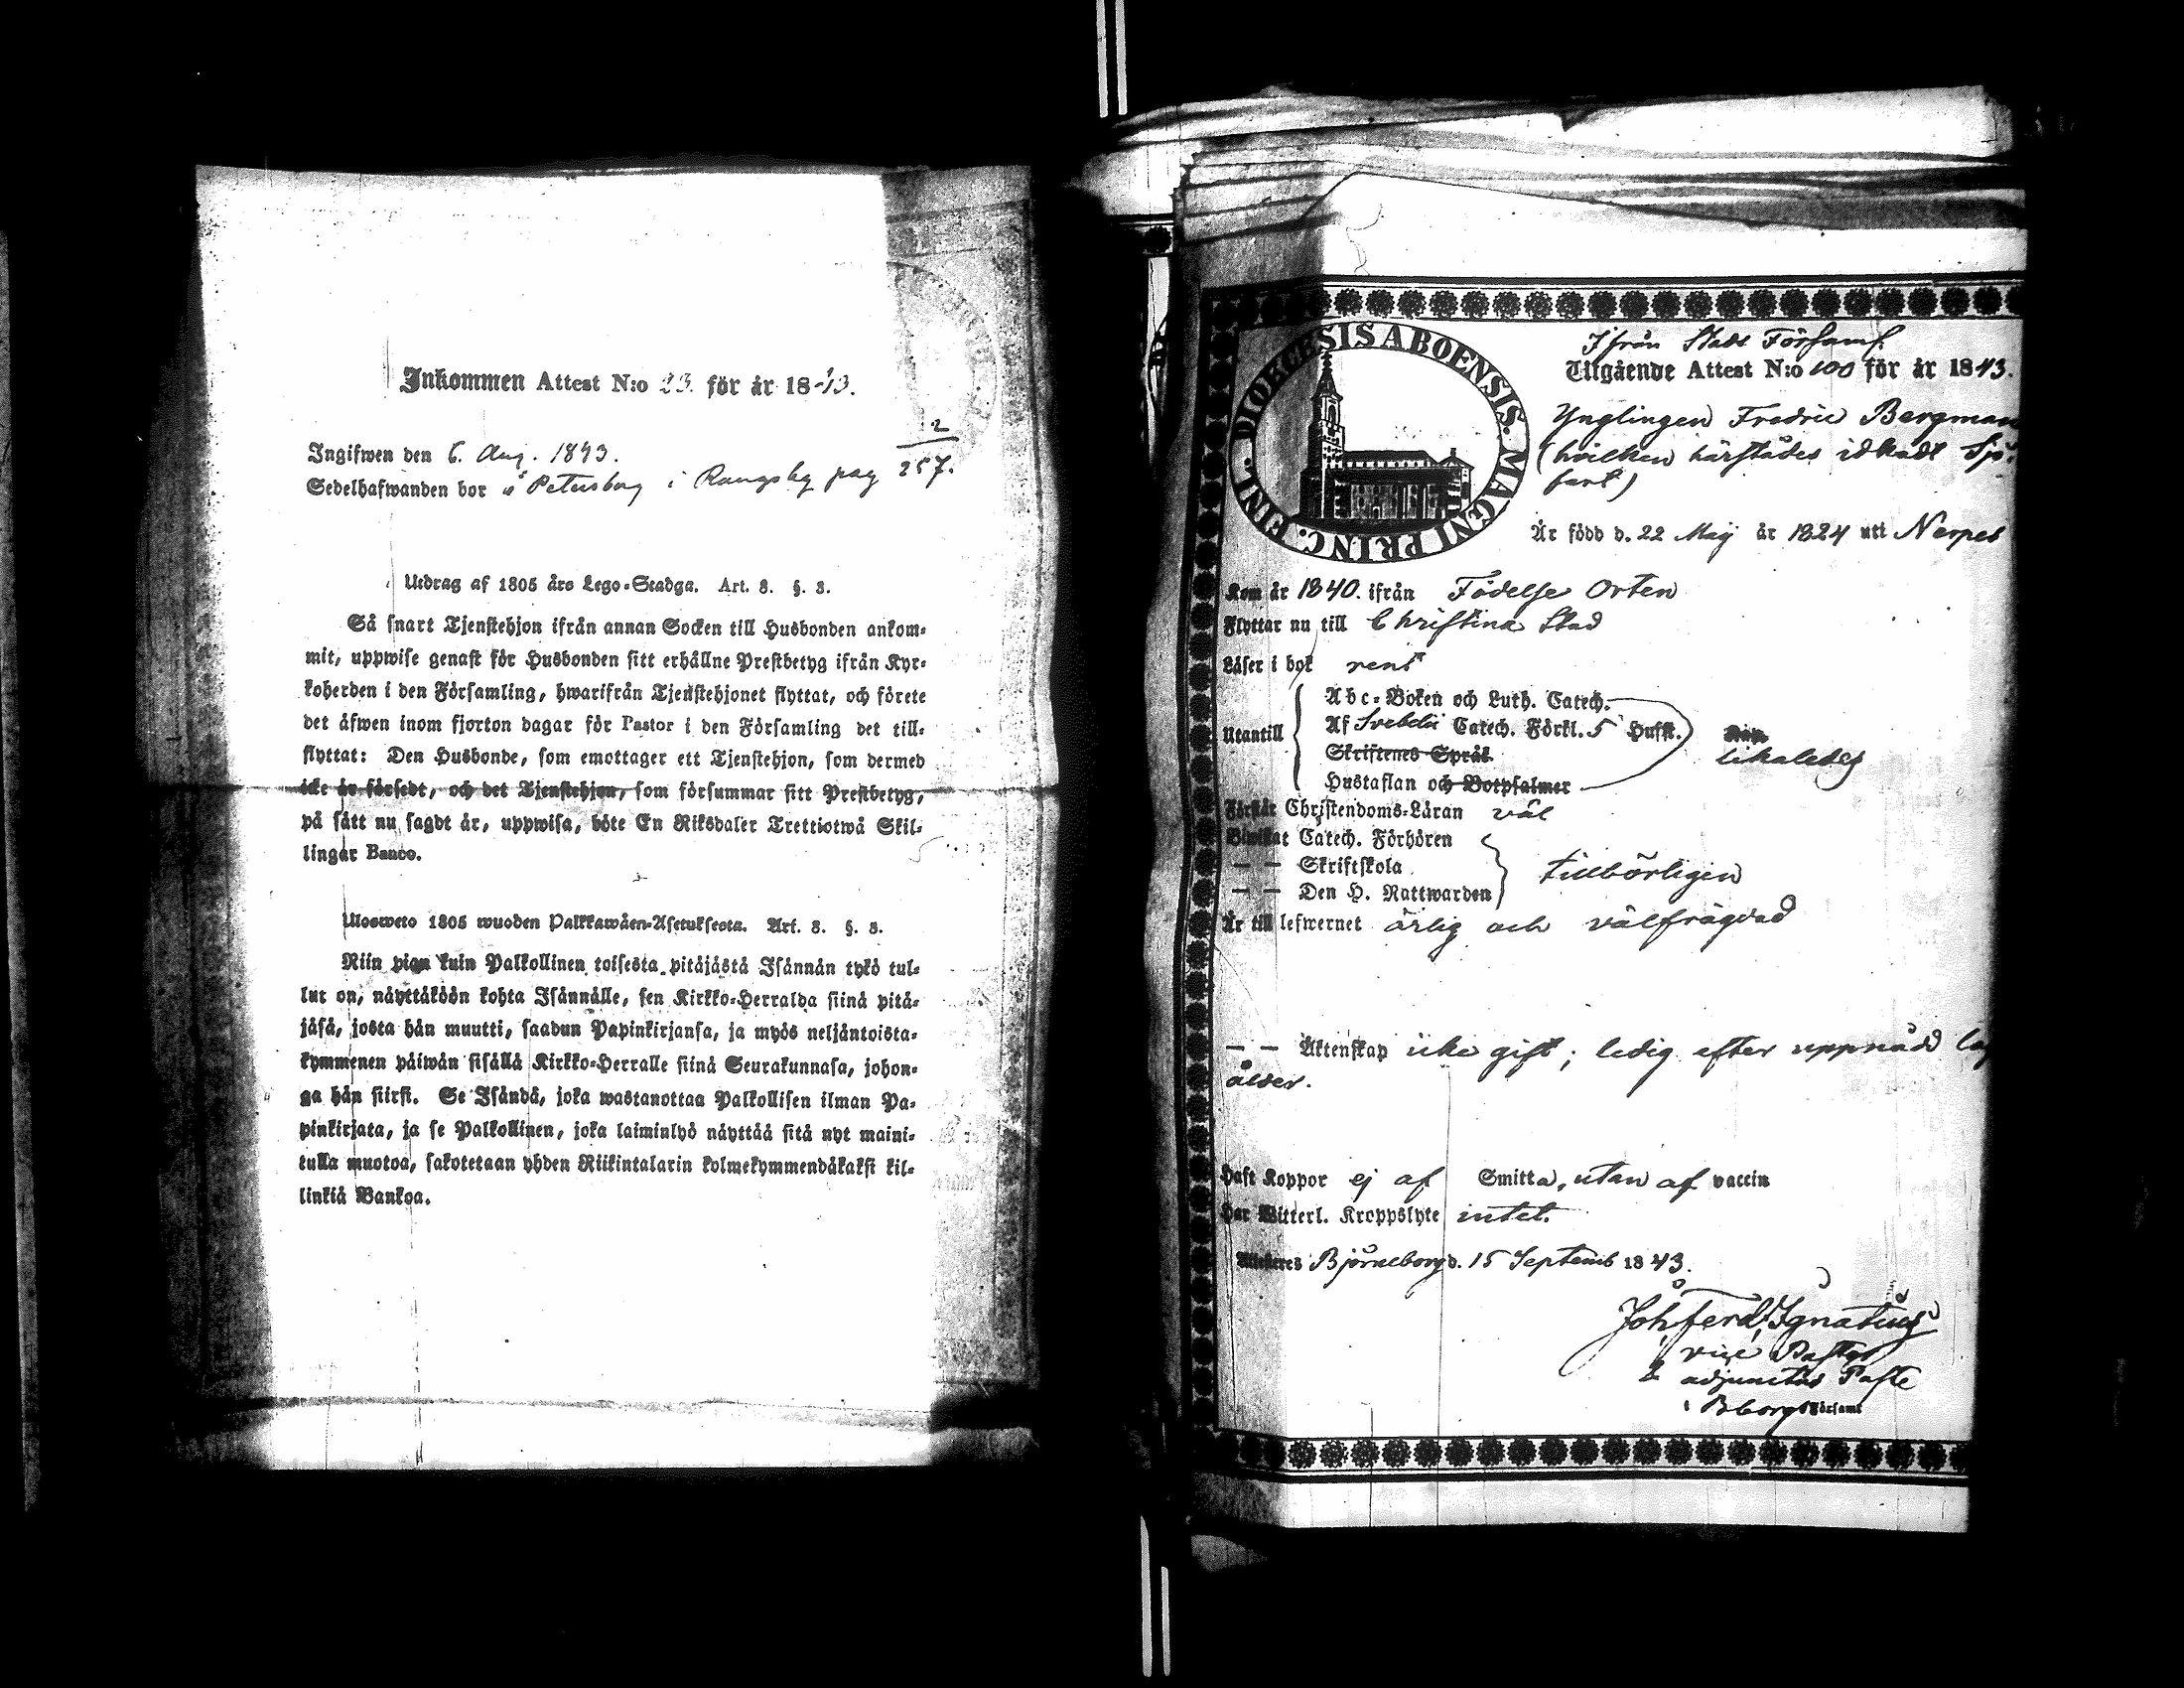 Inkommen Attest N:o 23. för år 1843.
Ingifwen den 6. Aug. 1843.
Sedelhafwanden bor å Petersborg i Rangsby pag 2/257.
Utdrag af 1805 års Lego-Stadga. Art. 3. §. 3.
Så snart Tjenstehjon ifrån annan Socken till Husbonden ankom-
mit, uppwise genast för Husbonden sitt erhållne Prestbetyg ifrån Kyr-
koherden i den Församling, hwarifrån Tjenstehjonet flyttat, och förete
det äfwen inom fjorton dagar för Pastor i den Församling det till-
flyttat: Den Husbonde, som emottager ett Tjenstehjon, som dermed
icke är försedt, och det Tjenstehjon, som försummar sitt Prestbetyg,
på sätt nu sagdt är, uppwisa, böte En Riksdaler Trettiotwå Skil-
lingar Banco.
Ulosweto 1805 wuoden Palkkawäen-Asetuksesta. Art. 3. §. 3.
Niin pian kuin Palkollinen toisesta pitäjästä Isännän tykö tul-
lut on, näyttäköön kohta Isännälle, sen Kirkko-Herralda siinä pitä-
jäsä, josta hän muutti, saadun Papinkirjansa, ja myös neljäntoista-
kymmenen päiwän sisällä Kirkko-Herralle siinä Seurakunnasa, johon-
ga hän siirsi. Se Isändä, joka wastanottaa Palkollisen ilman Pa-
pinkirjata, ja se Palkollinen, joka laiminlyö näyttää sitä nyt maini-
tulla muotoa, sakotetaan yhden Riikintalarin kolmekymmendäkaksi kil-
linkiä Bankoa.
DIOECESIS ABOENSIS. MAGNI PRINC. FINL.
Ifrån Stads Församl.
Utgående Attest N:o 100 för år 1843.
Ynglingen Fredric Bergman
(hvilken härstädes idkadt Sjö-
fart)
Är född d. 22 Maij år 1824 uti Nerpes
Kom år 1840. ifrån Födelse Orten
Flyttar nu till Christina Stad
Läser i bok rent
Utantill
Abc-Boken och Luth. Catech.
Af Svebelii Catech. Förkl. 5 Hufst.
likaledes
Skriftenes Språk
Hustaflan och Botpsalmer
Förstår Christendoms-Läran väl
Biwistat Catech. Förhören
— — Skriftskola
tillbörligen
— — Den H. Nattwarden
Är till lefwernet ärlig och välfrägdad
— — Äktenskap icke gift; ledig efter uppnådd lag
ålder.
Haft Koppor ej af Smitta, utan af vaccin
Har Witterl. Kroppslyte intet.
Attesteres Björneborg d. 15 Septemb 1843.
Joh. Ferd. Ignatius
vice Pastor
& adjunctus Past
i Bborgs Församl